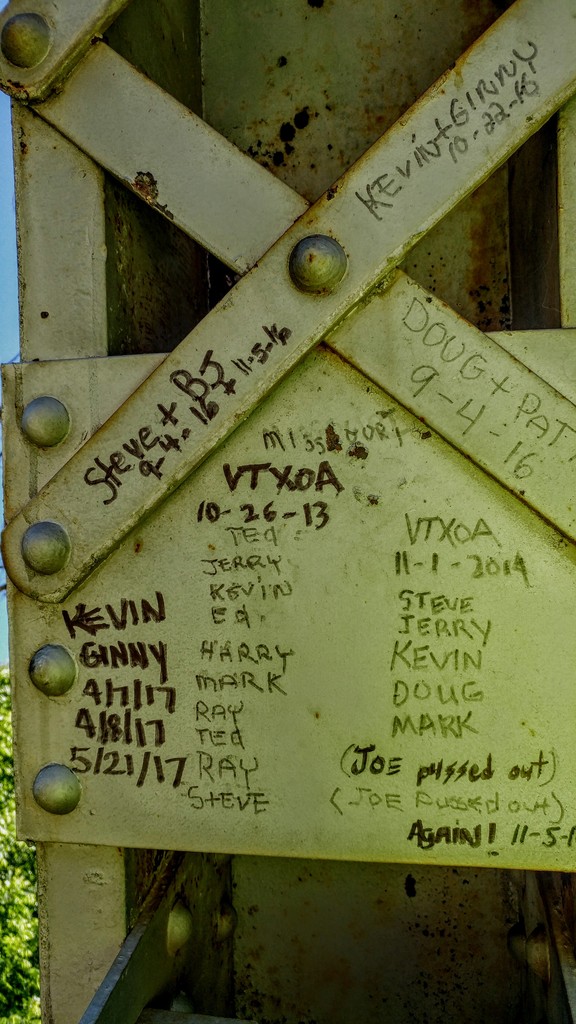 KEVIN+GINNY
10-22-16
DOUG + PATT
9-4-16
Steve + BJ
9-4-16 + 11-5-16
MISSOURI
VTXOA
10-26-13
TED
JERRY
KEVIN
ED.
HARRY
MARK
RAY
TED
RAY
STEVE
VTXOA
11-1-2014
STEVE
JERRY
KEVIN
DOUG
MARK
(JOE pussed out)
(JOE Pussed out)
AGAIN! 11-5-1
KEVIN
GINNY
4/7/17
4/8/17
5/21/17